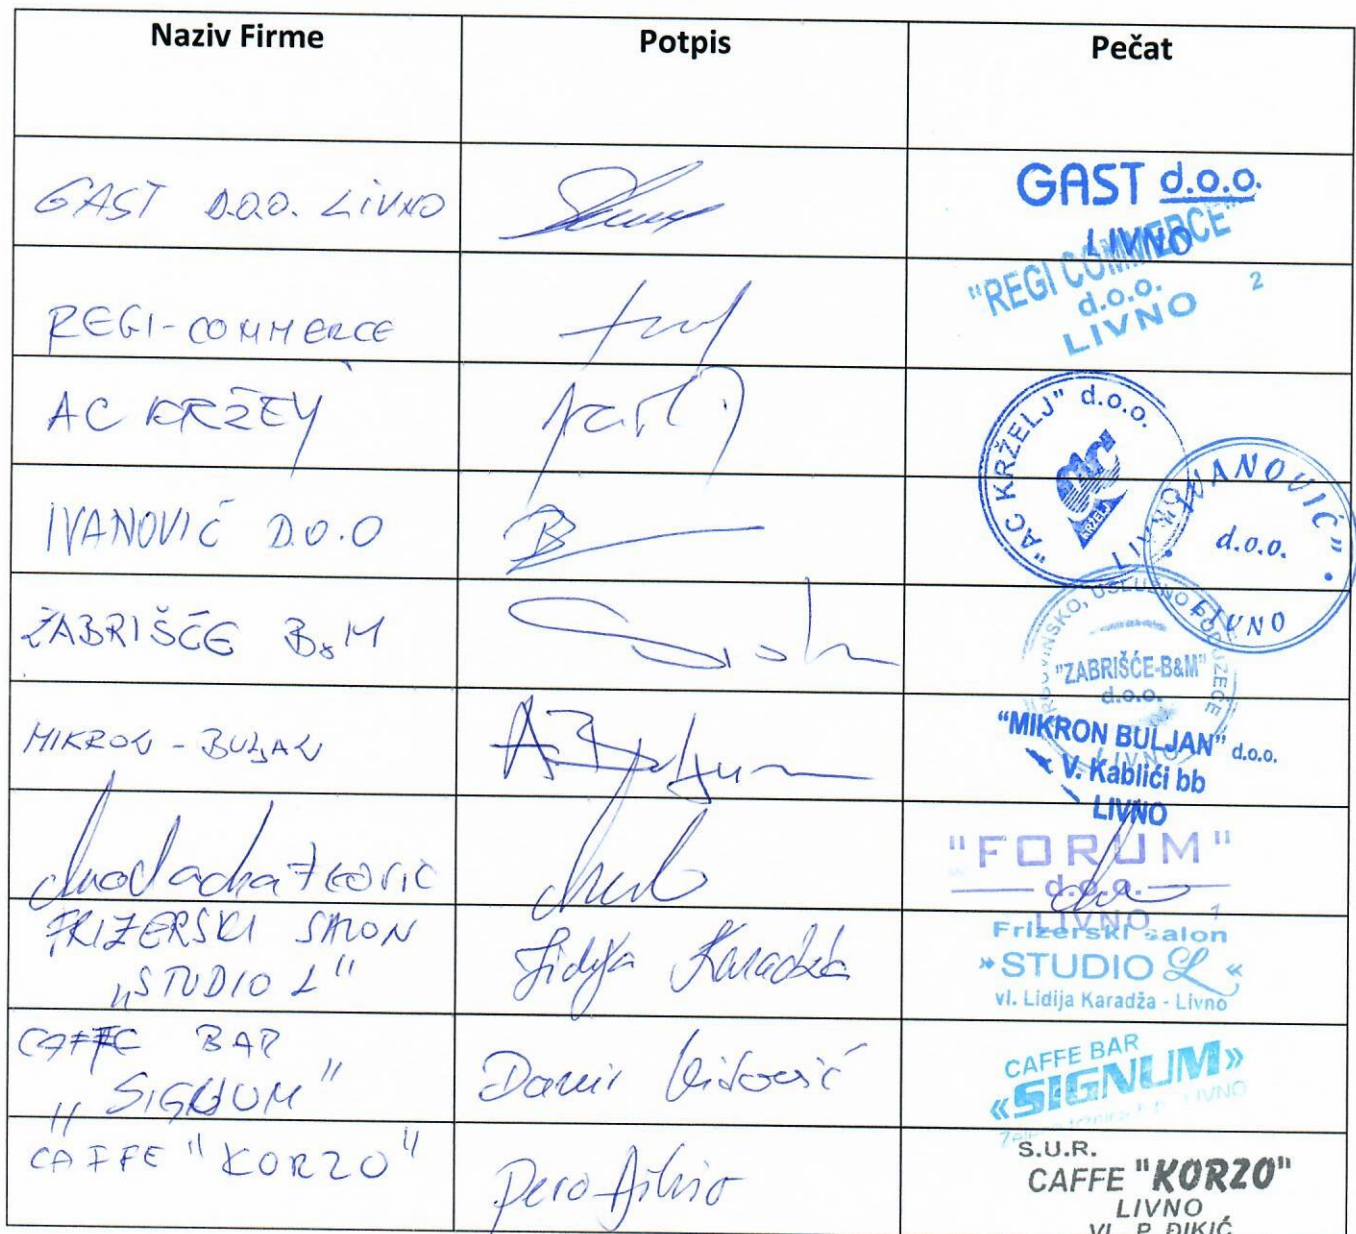 Naziv Firme Potpis Pečat
GAST D.O.O. LIVNO
GAST d.o.o.
LIVNO
REGI-COMMERCE
"REGI COMMERCE"
d.o.o. 2
LIVNO
AC KRŽELJ
"AC KRŽELJ" d.o.o.
LIVNO
IVANOVIĆ D.O.O
"IVANOVIĆ"
d.o.o.
LIVNO
ZABRIŠĆE B&M
USLUŽNO PODUZEĆE
"ZABRIŠĆE-B&M"
d.o.o.
LIVNO
MIKRON - BULJAN A Buljan
"MIKRON BULJAN" d.o.o.
V. Kablići bb
LIVNO
"FORUM"
d.o.o.
LIVNO 1
FRIZERSKI SALON
"STUDIO L" Lidija Karadža
Frizerski salon
»STUDIO L«
vl. Lidija Karadža - Livno
CAFFE BAR
"SIGNUM" Damir Vidović
CAFFE BAR
«SIGNUM»
LIVNO
CAFFE "KORZO" Pero Đikić
S.U.R.
CAFFE "KORZO"
LIVNO
Vl. P. ĐIKIĆ